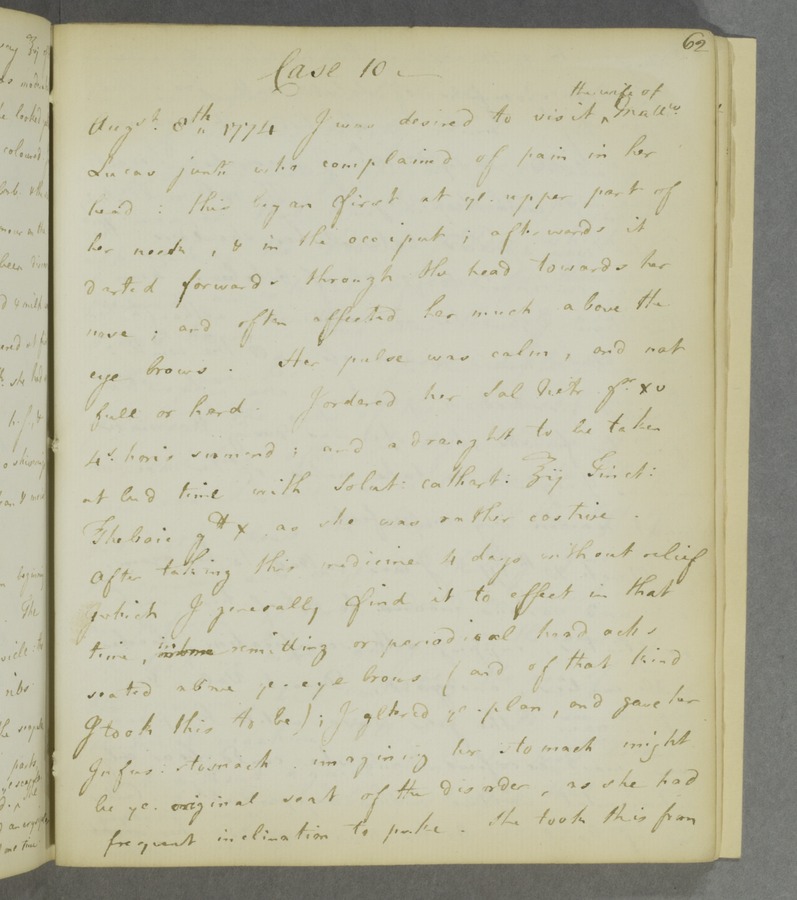 62
Case 10
the wife of
Augst. 8th, 1774 I was desired to visit ^ Matt:w
Lucas junr. who complain'd of pain in her
head : this began first at ye. upper part of
her neck, & in the occiput ; afterwards it
darted forwards through the head towards her
nose ; and often affected her much above the
eye brows. Her pulse was calm, and not
full or hard. I ordered her Sal Nitr gr xv
4s. horis sumend ; and a draught to be taken
at bed time with Solut: cathart: ʒij Tinct:
Thebaic gtt x, as she was rather costive.
After taking this medicine 4 days without relief
which I generally find it to effect in that
time, in remitting or periodical head achs
seated above ye. eye brows (and of that kind
I took this to be) ; I altered ye. plan, and gave her
Infus: stomach. imagining her stomach might
be ye. original seat of the disorder, as she had
frequent inclination to puke. She took this from